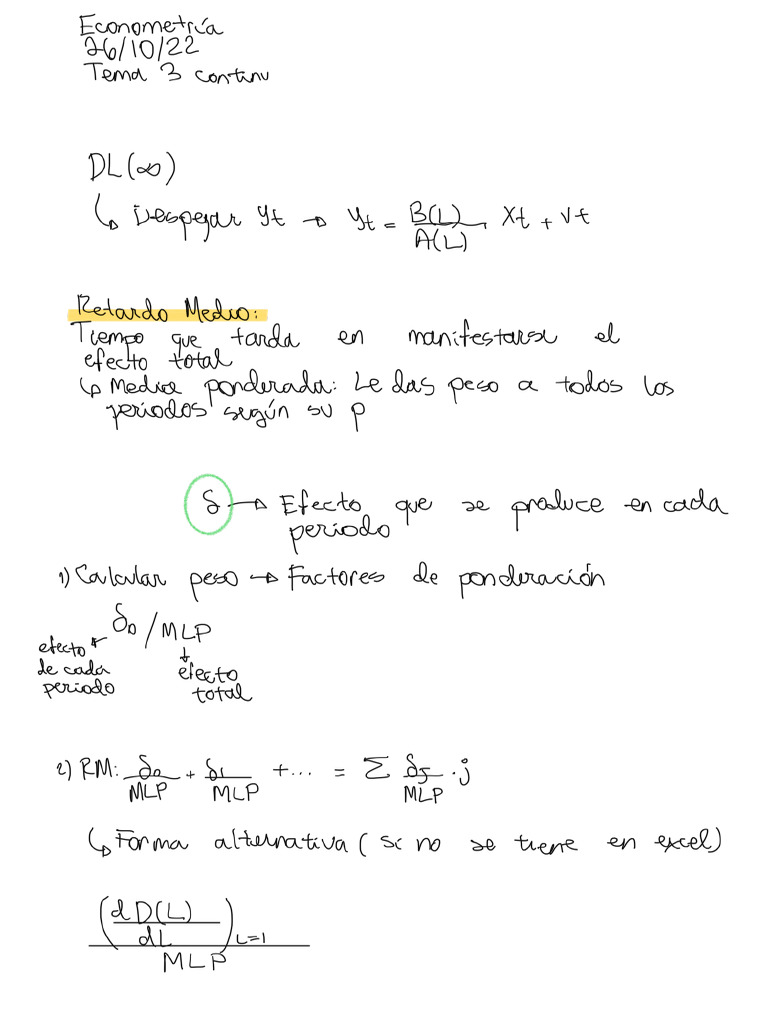 Econometría
26/10/22
Tema 3 continu
DL(∞)
↳ Despejar yt → yt = B(L)/A(L) Xt + vt
Retardo Medio:
Tiempo que tarda en manifestarse el
efecto total
↳ Media ponderada: Le das peso a todos los
periodos según su p
δ → Efecto que se produce en cada
periodo
1) Calcular peso → Factores de ponderación
δ0 / MLP
efecto
de cada
periodo
efecto
total
2) RM: δ0/MLP + δ1/MLP + ... = Σ δj/MLP · j
↳ Forma alternativa (si no se tiene en excel)
(dD(L)/dL) L=1
MLP